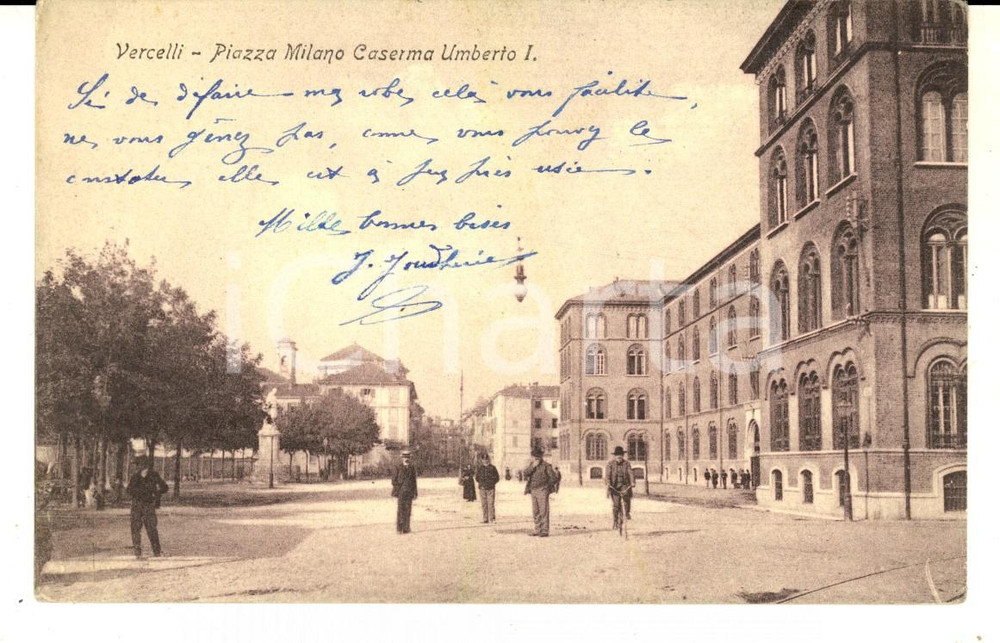 Vercelli - Piazza Milano Caserma Umberto I.
Si de défaire ma robe, celà vous facilite,
ne vous gênez pas, come vous pouvez le
constater, elle est à peu près usée.
Mille bonnes bises
J.
iCharta